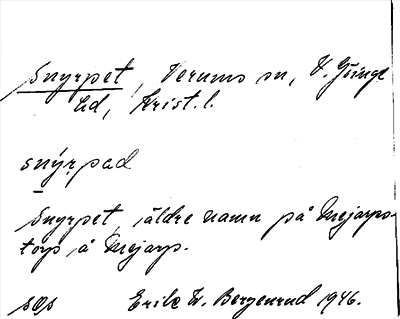 Snyrpet, Verums sn, V. Göinge
hd, Krist. l.
snýrpad
Snyrpet, äldre namn på Mejarps-
torp å Mejarp.
SOs Erik W. Bergenrud 1946.